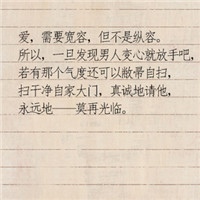 爱，需要宽容，但不是纵容。
所以，一旦发现男人变心就放手吧，
若有那个气度还可以敝帚自扫，
扫干净自家大门，真诚地请他，
永远地——莫再光临。